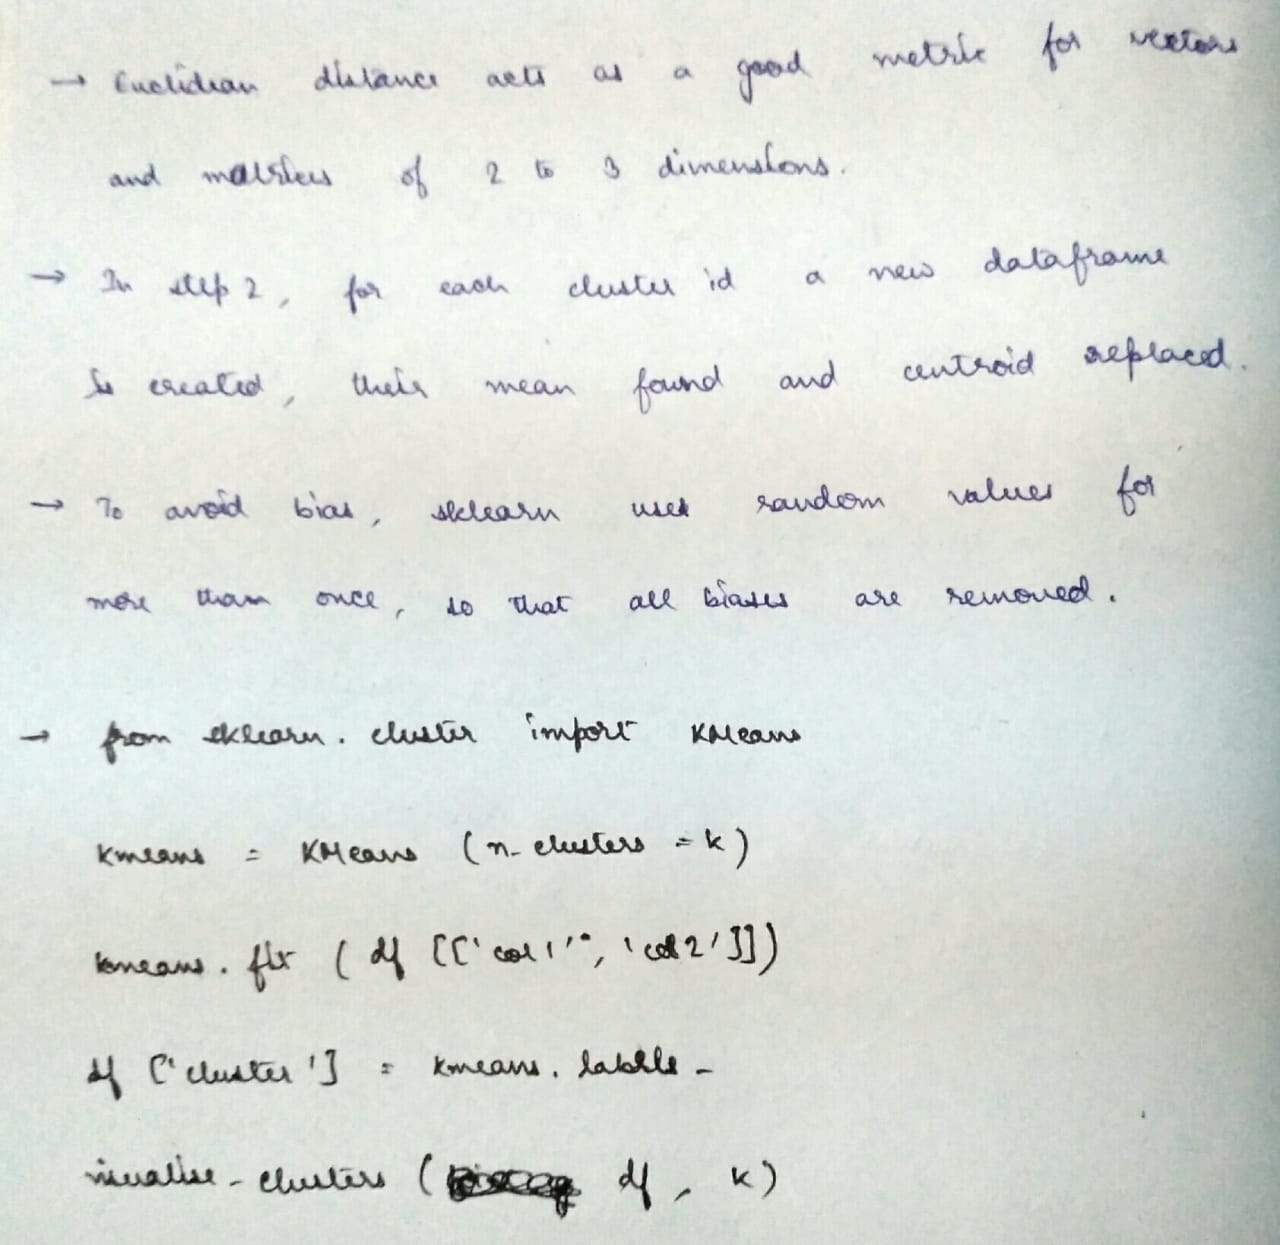 → Euclidean distance acts as a good metric for vectors
and matrices of 2 to 3 dimensions.
→ In step 2, for each cluster id a new dataframe
is created, their mean found and centroid replaced.
→ To avoid bias, sklearn uses random values for
more than once, so that all biases are removed.
→ from sklearn.cluster import KMeans
kmeans = KMeans (n_clusters = k)
kmeans.fit (df [['col1', 'col2']])
df ['cluster'] = kmeans.labels_
visualise_clusters ( df, k)